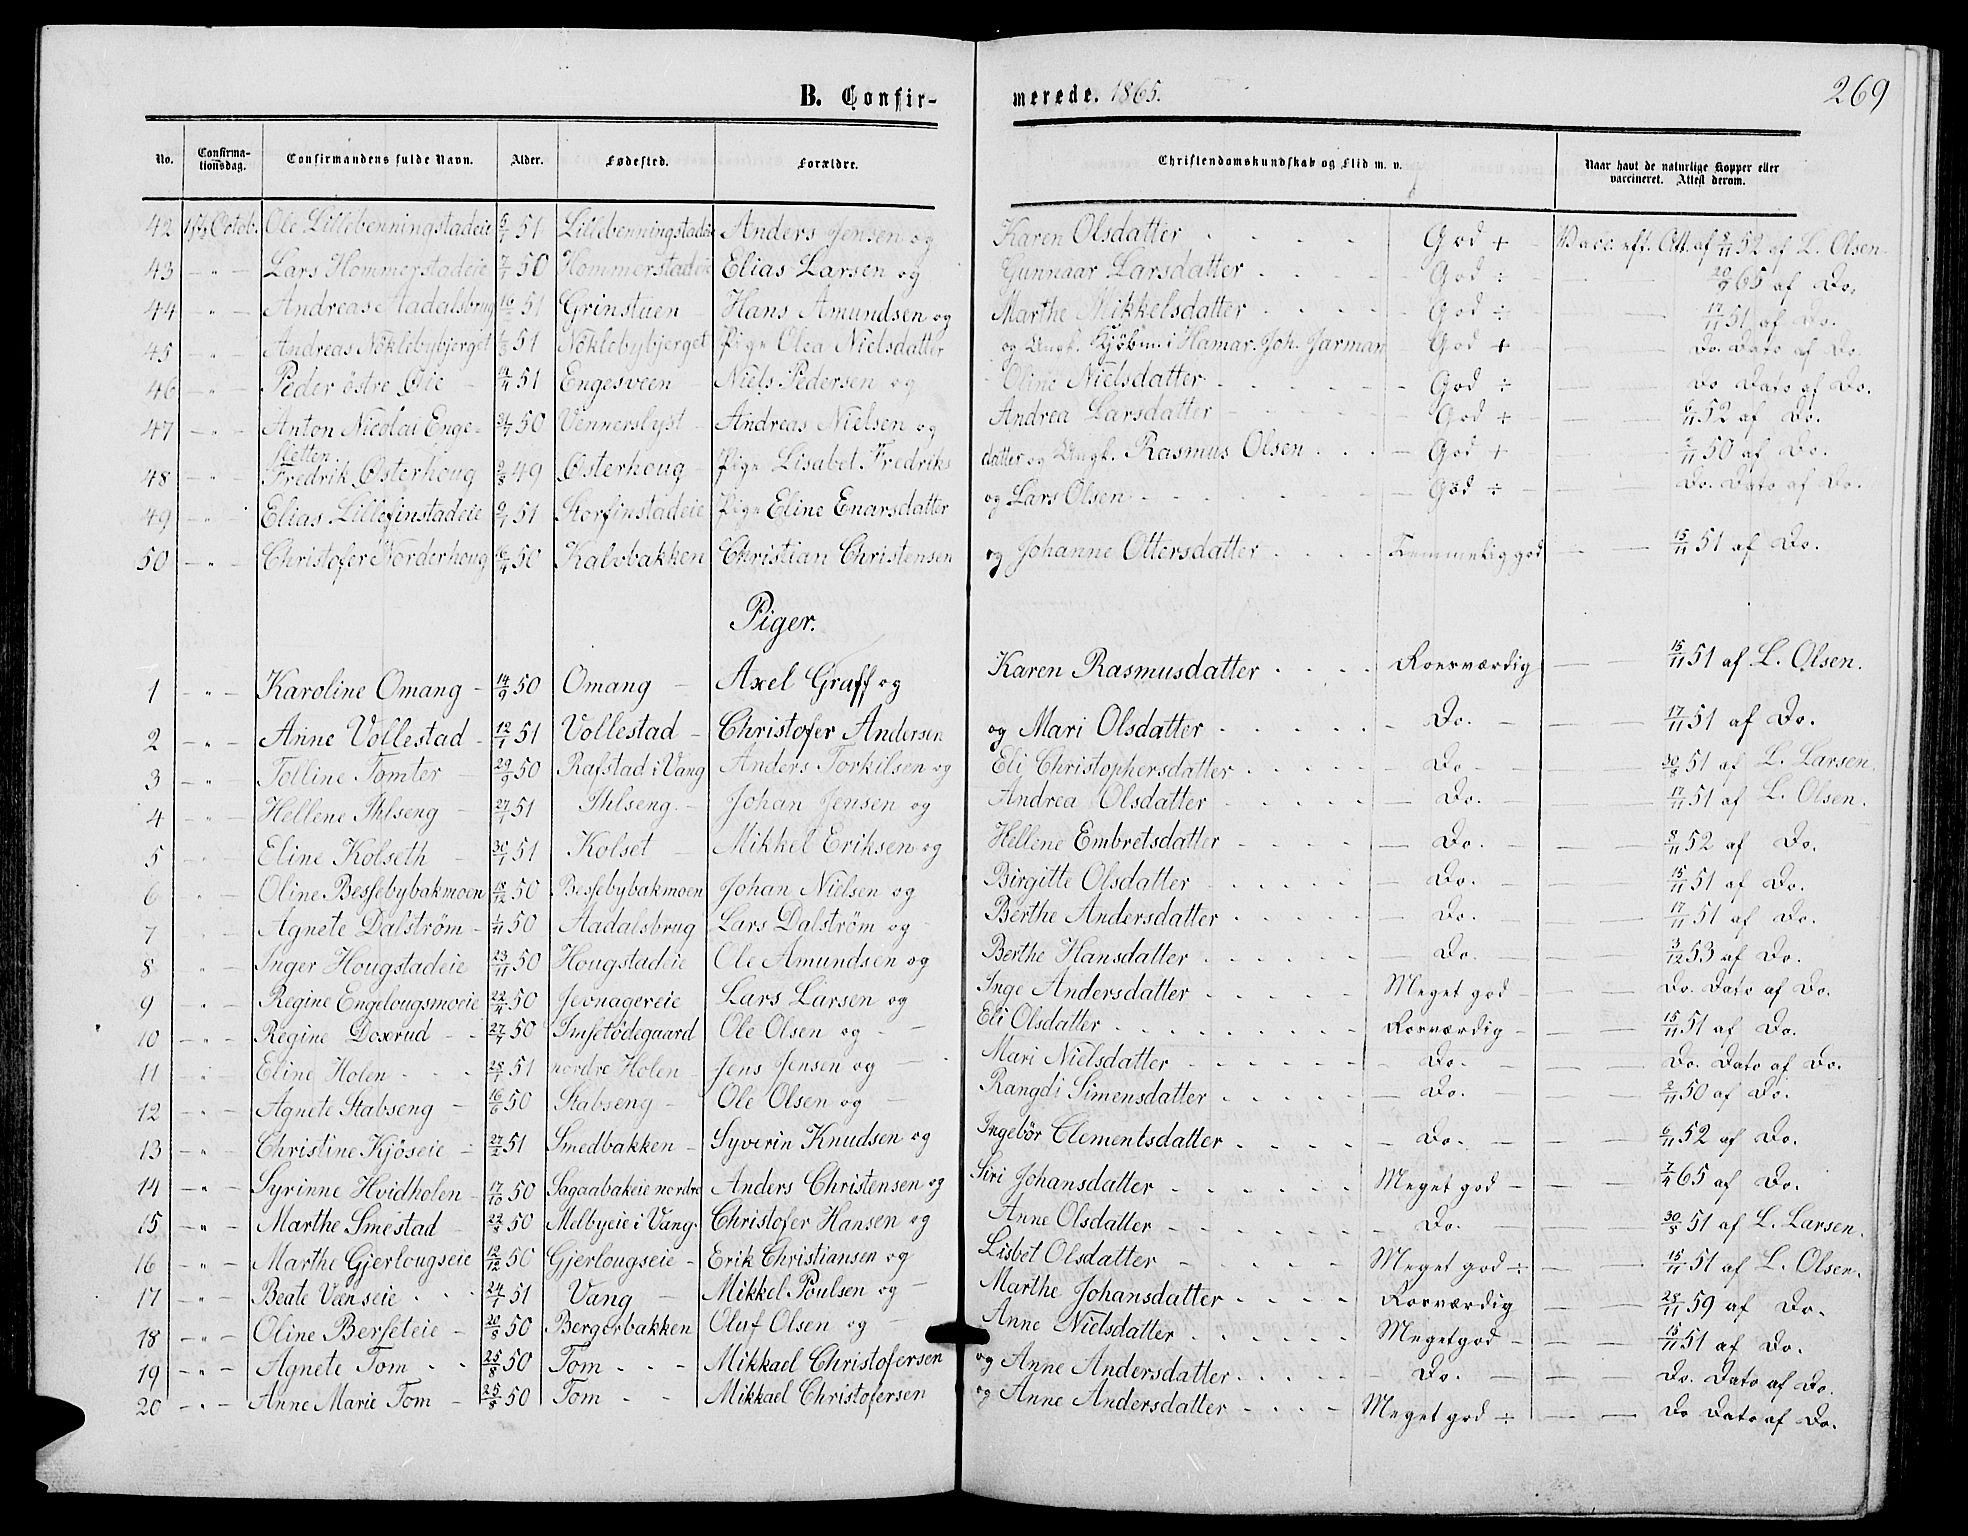 B. Confirmerede. 1865.
269
No. Confirmationsdag. Confirmandens fulde Navn. Alder. Fødested. Forældre. Christendomskundskab og Flid m. v. Naar havt de naturlige Kopper eller vaccineret. Attest derom.
42 Octob. Ole Lillebenningstadeie 51 Lillebenningstadeie Anders Jensen og Karen Olsdatter God + Vacc. eft. Att. af 8/11 52 af L. Olsen
43 - " - Lars Hommerstadeie 50 Hommerstadeie Elias Larsen og Gunnaar Larsdatter God ÷ 20/9 65 af Do.
44 - " - Andreas Aadalsbrug 51 Grinstuen Hans Amundsen og Marthe Mikkelsdatter God ÷ 17/11 51 af Do.
45 - " - Andreas Nöklebybjerget 51 Nöklebybjerget Pige Olea Nielsdatter og Ungk. Kjöbm. i Hamar. Joh. Jarman God + Do. Dato af Do
46 - " - Peder östre Øie 14/4 51 Engesveen Niels Pedersen og Oline Nielsdatter God ÷ Do Dato af Do.
47 - " - Anton Nicolai Engesletten 50 Vennerslyst Andreas Nielsen og Andrea Larsdatter God ÷ 6/11 52 af Do.
48 - " - Fredrik Østerhoug 49 Østerhoug Pige Lisabet Fredriksdatter og Ungk. Rasmus Olsen God + 2/11 50 af Do.
49 - " - Elias Lillefinstadeie 51 Storfinstadeie Pige Eline Enarsdatter og Lars Olsen God ÷ Do. Dato af Do.
50 - " - Christofer Norderhoug 50 Kalsbakken Christian Christensen og Johanne Ottersdatter Temmelig god 15/11 51 af Do.
Piger.
1 - " - Karoline Omang 14/9 50 Omang Axel Graff og Karen Rasmusdatter Roesværdig 15/11 51 af L. Olsen.
2 - " - Anne Vollestad 12/1 51 Vollestad Christofer Andersen og Mari Olsdatter Do. 17/11 51 af Do.
3 - " - Tolline Tomter 29/9 50 Rafstad i Vang Anders Torkilsen og Eli Christophersdatter Do 30/8 51 af L. Larsen.
4 - " - Hellene Ihlseng 27/1 51 Ihlseng Johan Jensen og Andrea Olsdatter Do. 17/11 51 af L. Olsen.
5 Eline Kolseth 30/1 51 Kolset Mikkel Eriksen og Hellene Embretsdatter Do. 8/11 52 af Do.
6 Oline Bessebybakmoen 18/12 50 Bessebybakmoen Johan Nielsen og Birgitte Olsdatter Do. 15/11 51 af Do.
7 Agnete Dalström 1/11 50 Aadalsbrug Lars Dalström og Berthe Andersdatter Do. 17/11 51 af Do.
8 Inger Hougstadeie 23/11 50 Hougstadeie Ole Amundsen og Berthe Hansdatter Do. 3/12 53 af Do.
9 Regine Engelougsmoeie 22/4 50 Jevnagereie Lars Larsen og Inge Andersdatter Meget god Do. Dato af Do.
10 - " - Regine Doxrud 27/7 50 Imsetödegaard Ole Olsen og Eli Olsdatter Rosværdig 15/11 51 af Do.
11 Eline Holen 28/1 51 nordre Holen Jens Jensen og Mari Nielsdatter Do. Do. Dato af Do.
12 - " - Agnete Stabseng 16/6 50 Stabseng Ole Olsen og Rangdi Simensdatter Do. 2/11 50 af Do.
13 - " - Christine Kjöseie 27/2 51 Smedbakken Syverin Knudsen og Ingebör Clementsdatter Do. 6/11 52 af Do.
14 - " - Syrinne Hvidholen 17/10 50 Sagaabakeie nordre Anders Christensen og Siri Johansdatter Meget god 7/4 65 af Do.
15 - " - Marthe Smestad 50 Melbyeie i Vang Christofer Hansen og Anne Olsdatter Do. 30/8 51 af L. Larsen.
16 - " - Marthe Gjerlougseie 12/12 50 Gjerlougseie Erik Christiansen og Lisbet Olsdatter Meget god ÷ 15/11 51 af L. Olsen.
17 - " - Beate Vænseie 24/1 51 Vang Mikkel Poulsen og Marthe Johansdatter Rosværdig 28/11 59 af Do.
18 - " - Oline Berseteie 20/8 50 Bergerbakken Oluf Olsen og Anne Nielsdatter Meget god 15/11 51 af Do.
19 - " - Agnete Tom 25/8 50 Tom Mikkael Christofersen og Anne Andersdatter Do. Do. Dato af Do.
20 - " - Anne Marie Tom 25/8 50 Tom Mikkael Christofersen og Anne Andersdatter Meget god ÷ Do Dato af Do.